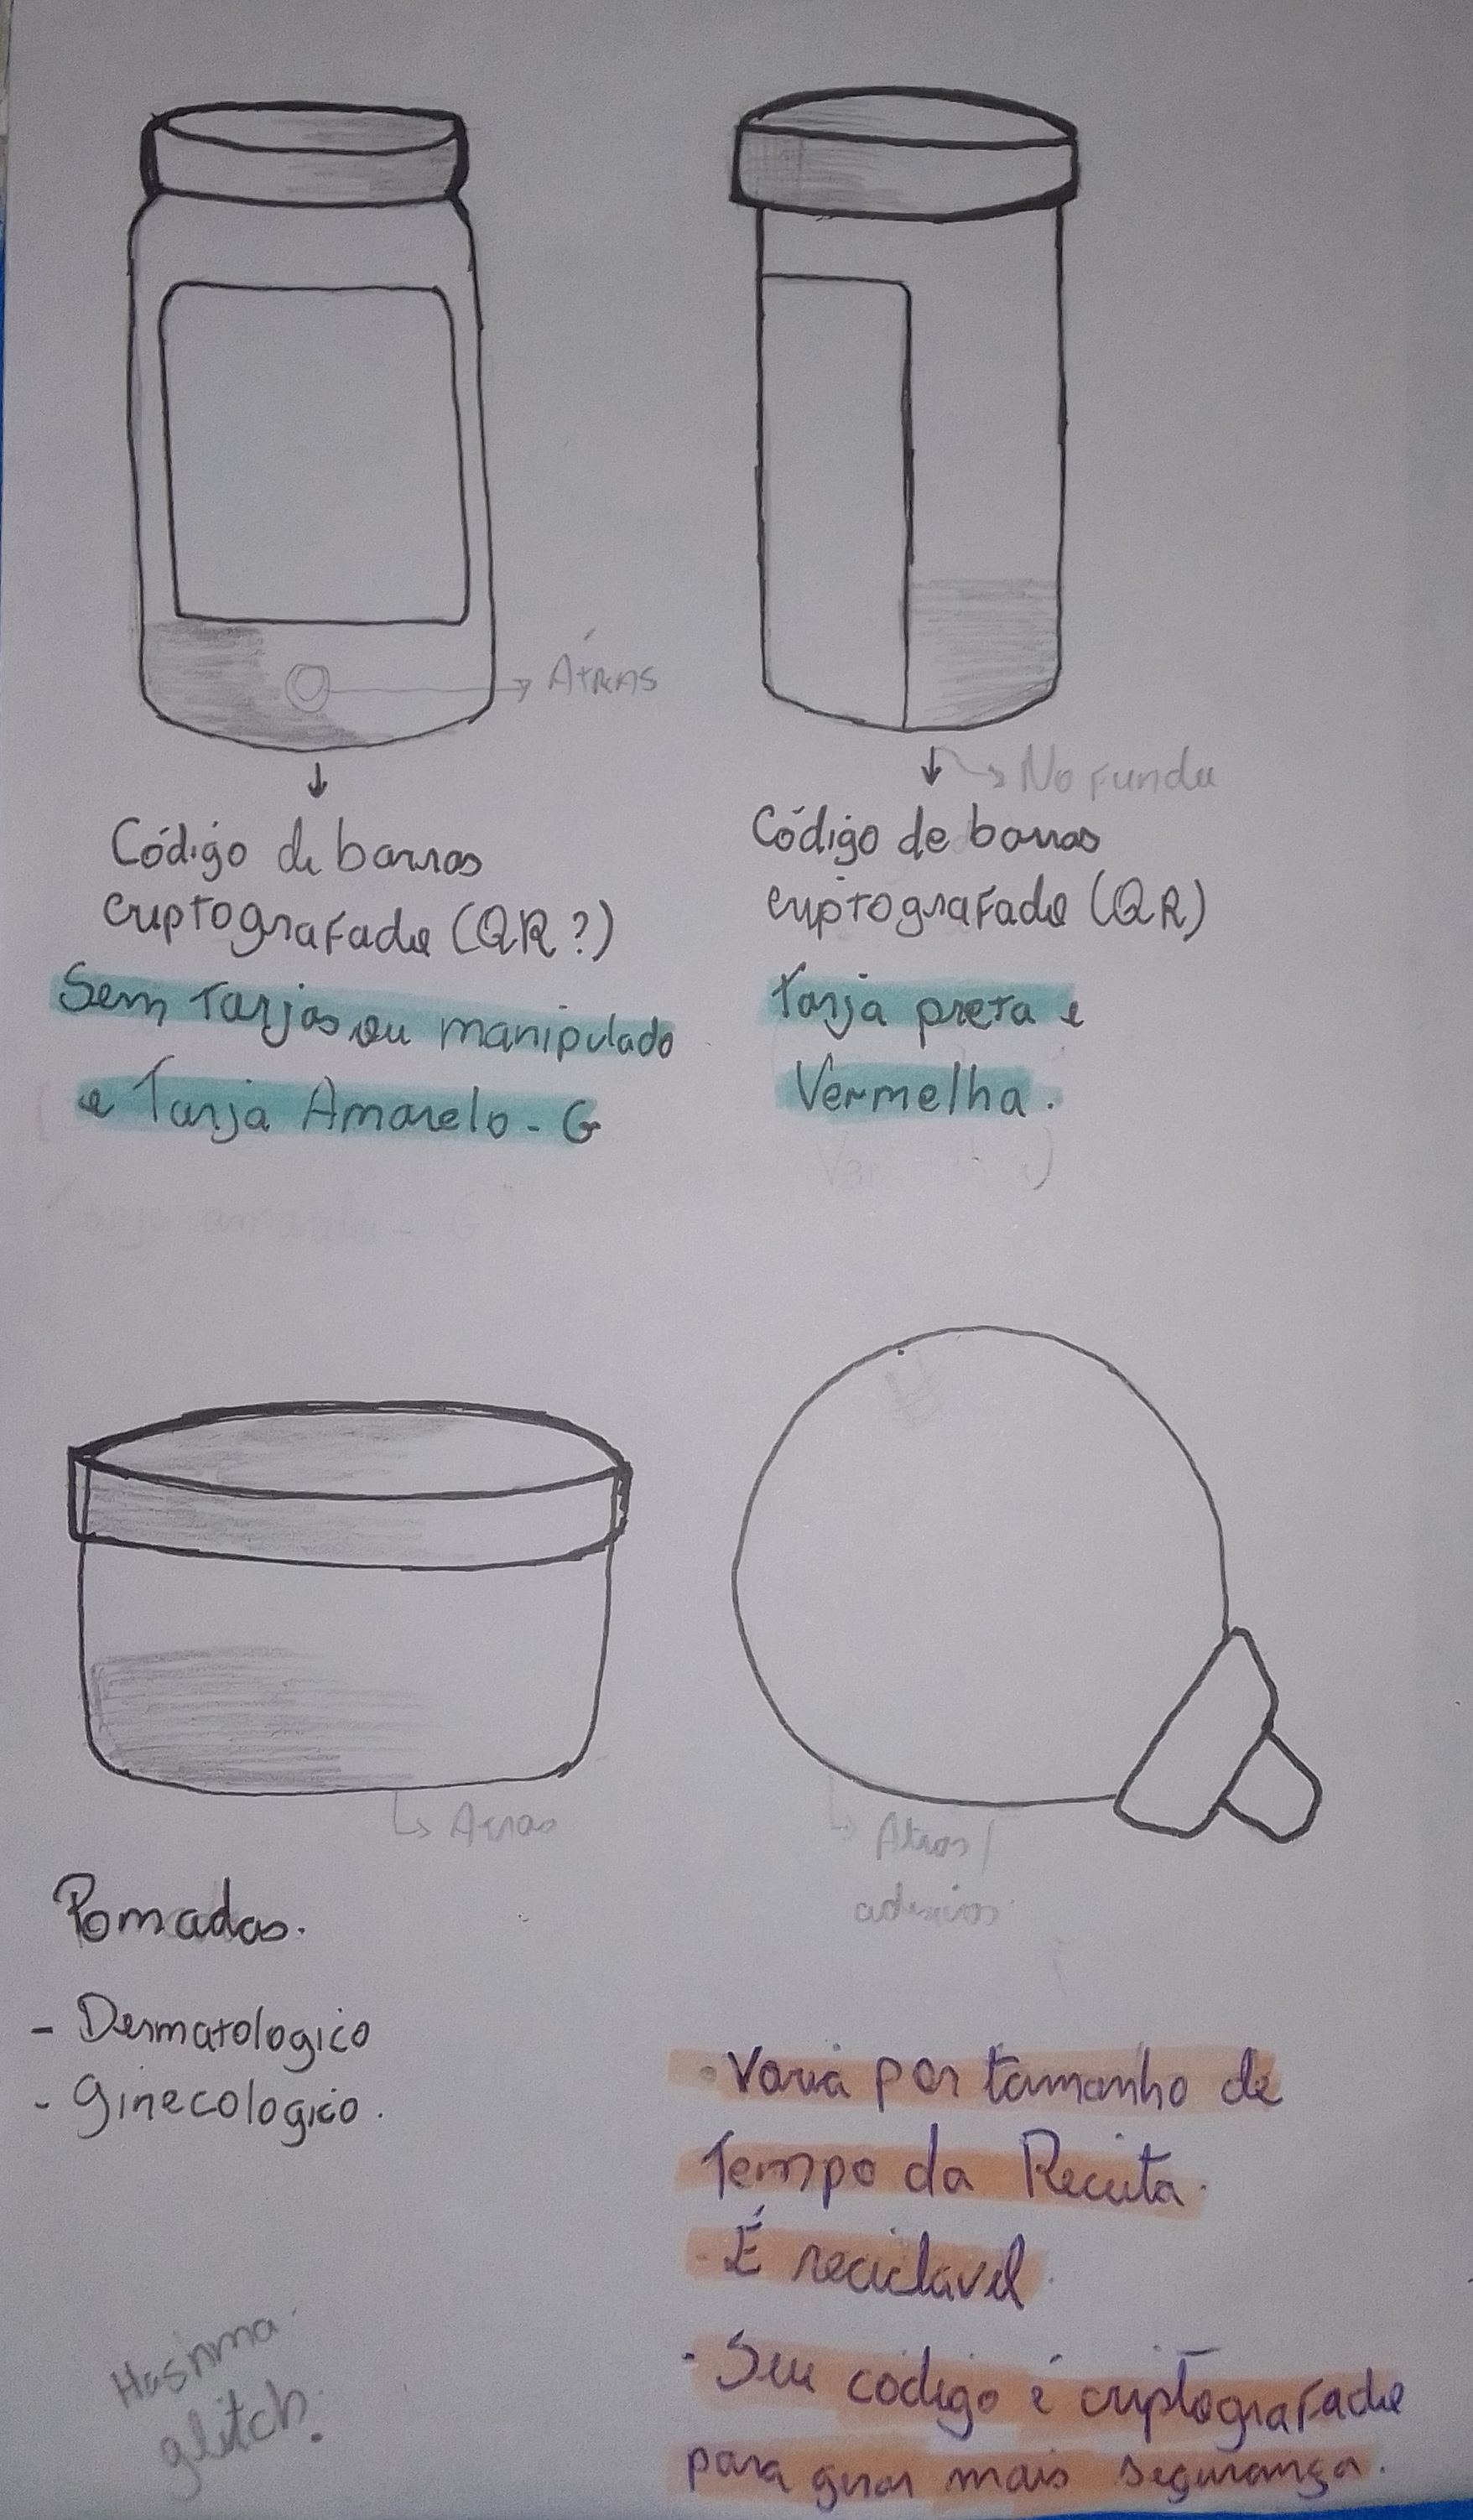 Atrás
No fundo
Código de barras
criptografado (QR?)
Sem Tarjas ou manipulado
e Tarja Amarelo - G
Código de barras
criptografado (QR)
Tarja preta e
Vermelha.
Atras
Atras/
adesivos
Pomadas.
- Dermatologico
- Ginecologico.
· Varia por tamanho de
Tempo da Receita.
- É reciclavel.
- Seu código é criptografado
para gerar mais segurança.
glitch.